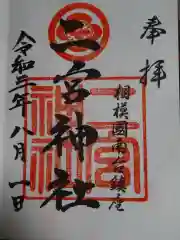 奉拝
相模國南石鎮座
二宮神社
令和三年八月一日